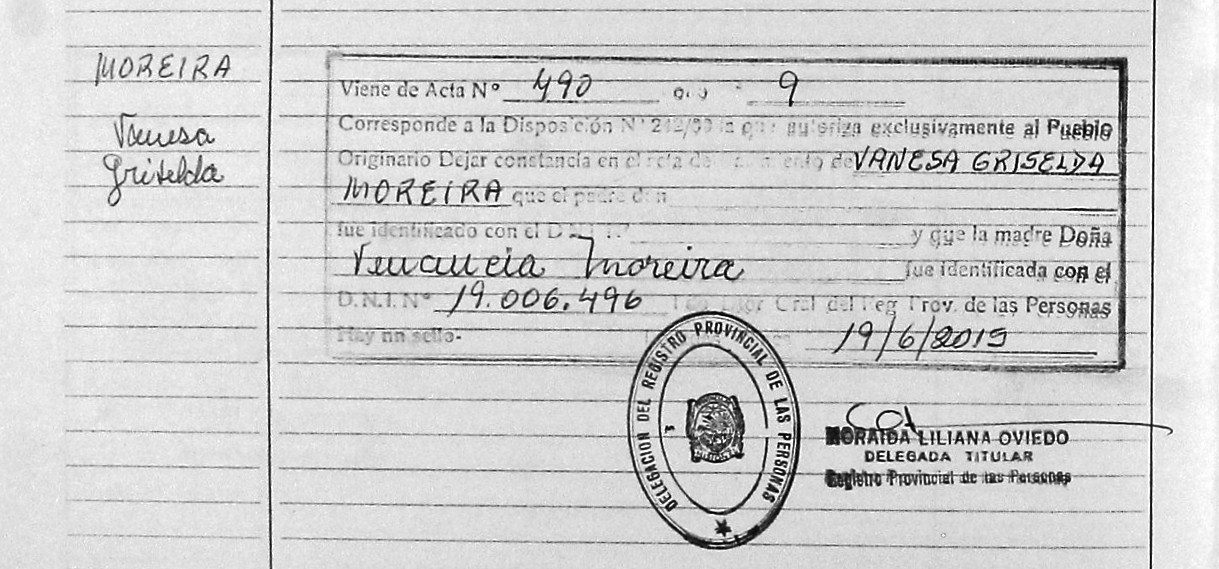 MOREIRA
Vanesa
Griselda
Viene de Acta Nº 490 9
Corresponde a la Disposición Nº 242/99 la que autoriza exclusivamente al Pueblo
Originario Dejar constancia en el acta de de VANESA GRISELDA
MOREIRA que el padre don
fue identificado con el D.N.I. Nº y que la madre Doña
Venancia Moreira fue identificada con el
D.N.I. Nº 19.006.496 Gral del Reg Prov. de las Personas
Hay un sello- 19/6/2015
DELEGACION DEL REGISTRO PROVINCIAL DE LAS PERSONAS
NORAIDA LILIANA OVIEDO
DELEGADA TITULAR
Registro Provincial de las Personas